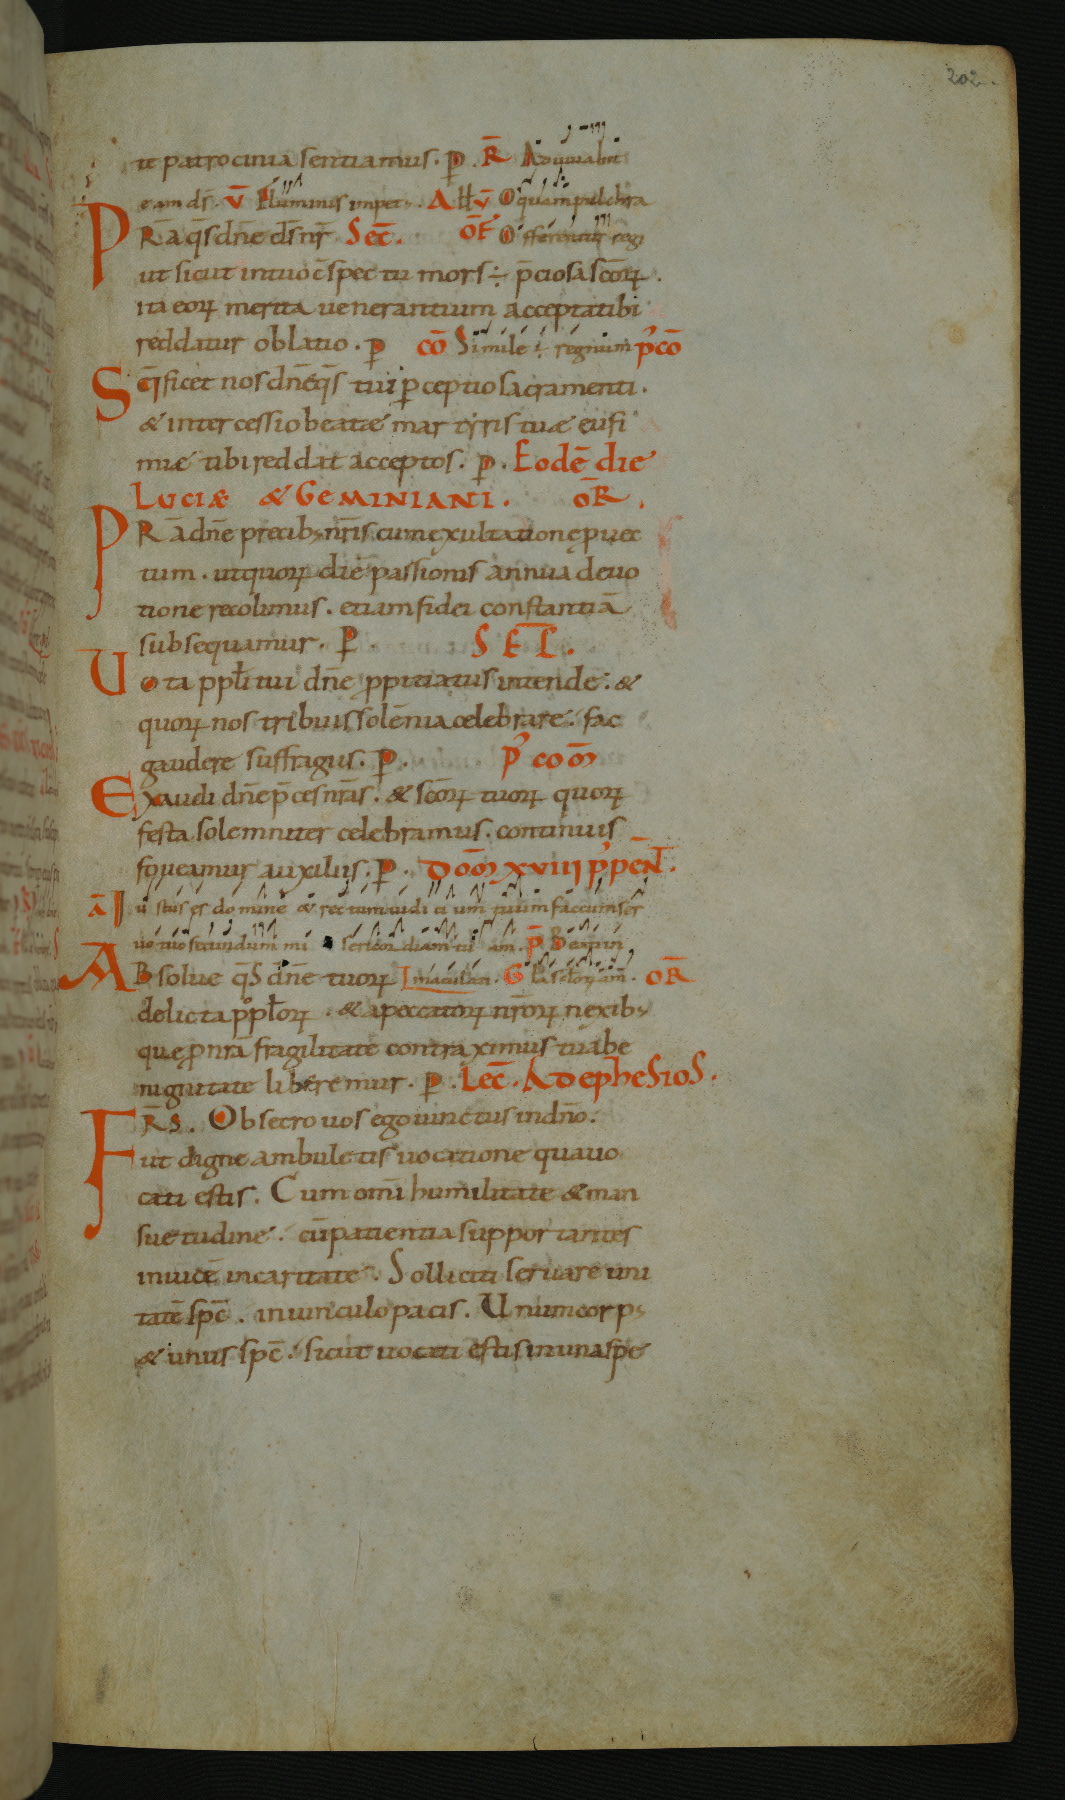 202.
te patrocinia sentiamus. P. R̄ Adiuuabit
eam ds̄. V̄ Fluminis impet;. All v̄ O quam pulchra
PR̄a q̄s dn̄e ds̄ nr̄ Sec̄. OF̄ Offerentur regi
ut sicut in tuo c̄spectu mors ÷ p̄ciosa sc̄oꝝ.
ita eoꝝ merita uenerantium accepta tibi
reddatur oblatio. P CŌ Simile ÷ regnum p̓cō
Sc̄ificet nos dn̄e q̄s tui ꝑceptio sacramenti.
& intercessio beatæ martyris tuæ eufi
miæ tibi reddat acceptos. P. Eodē die
LUCIÆ & GEMINIANI. OR̄.
PR̄a dn̄e precib; nr̄is cum exultatione ꝓuec
tum. ut quoꝝ diē passionis annua deuo
tione recolimus. etiam fidei constantiā
subsequamur. P. SEC̄.
Uota ppl̄i tui dn̄e ꝓpitiatus intende. &
quoꝝ nos tribuis solēnia celebrare. fac
gaudere suffragiis. P. p̓ com̄
Exaudi dn̄e p̄ces nr̄as. & sc̄oꝝ tuoꝝ quoꝝ
festa solemniter celebramus. continuis
foueamur auxiliis. P. Dom̄ xviii p̓ pen̄t.
ā Iustus es domine & rectum iudicium tuum fac cum ser
uo tuo secundum misericordiam tuam. p̄ Beati in
ABsolue q̄s dn̄e tuoꝝ Imaculati. G OR̄
delicta ppl̄oꝝ. & a peccatoꝝ nr̄oꝝ nexib;
quę ꝓ nr̄a fragilitate contraximus tua be
nignitate liberemur. P. Lec̄. Ad epheSioS.
FR̄S. Obsecro uos ego uinctus in dn̄o.
ut digne ambuletis uocatione qua uo
cati estis. Cum om̄i humilitate & man
suetudine. cū patientia supportantes
inuicē in caritate. Solliciti seruare uni
tatē sp̄c. in uinculo pacis. Unum corp;
& unus sp̄c. sicut uocati estis in una spe